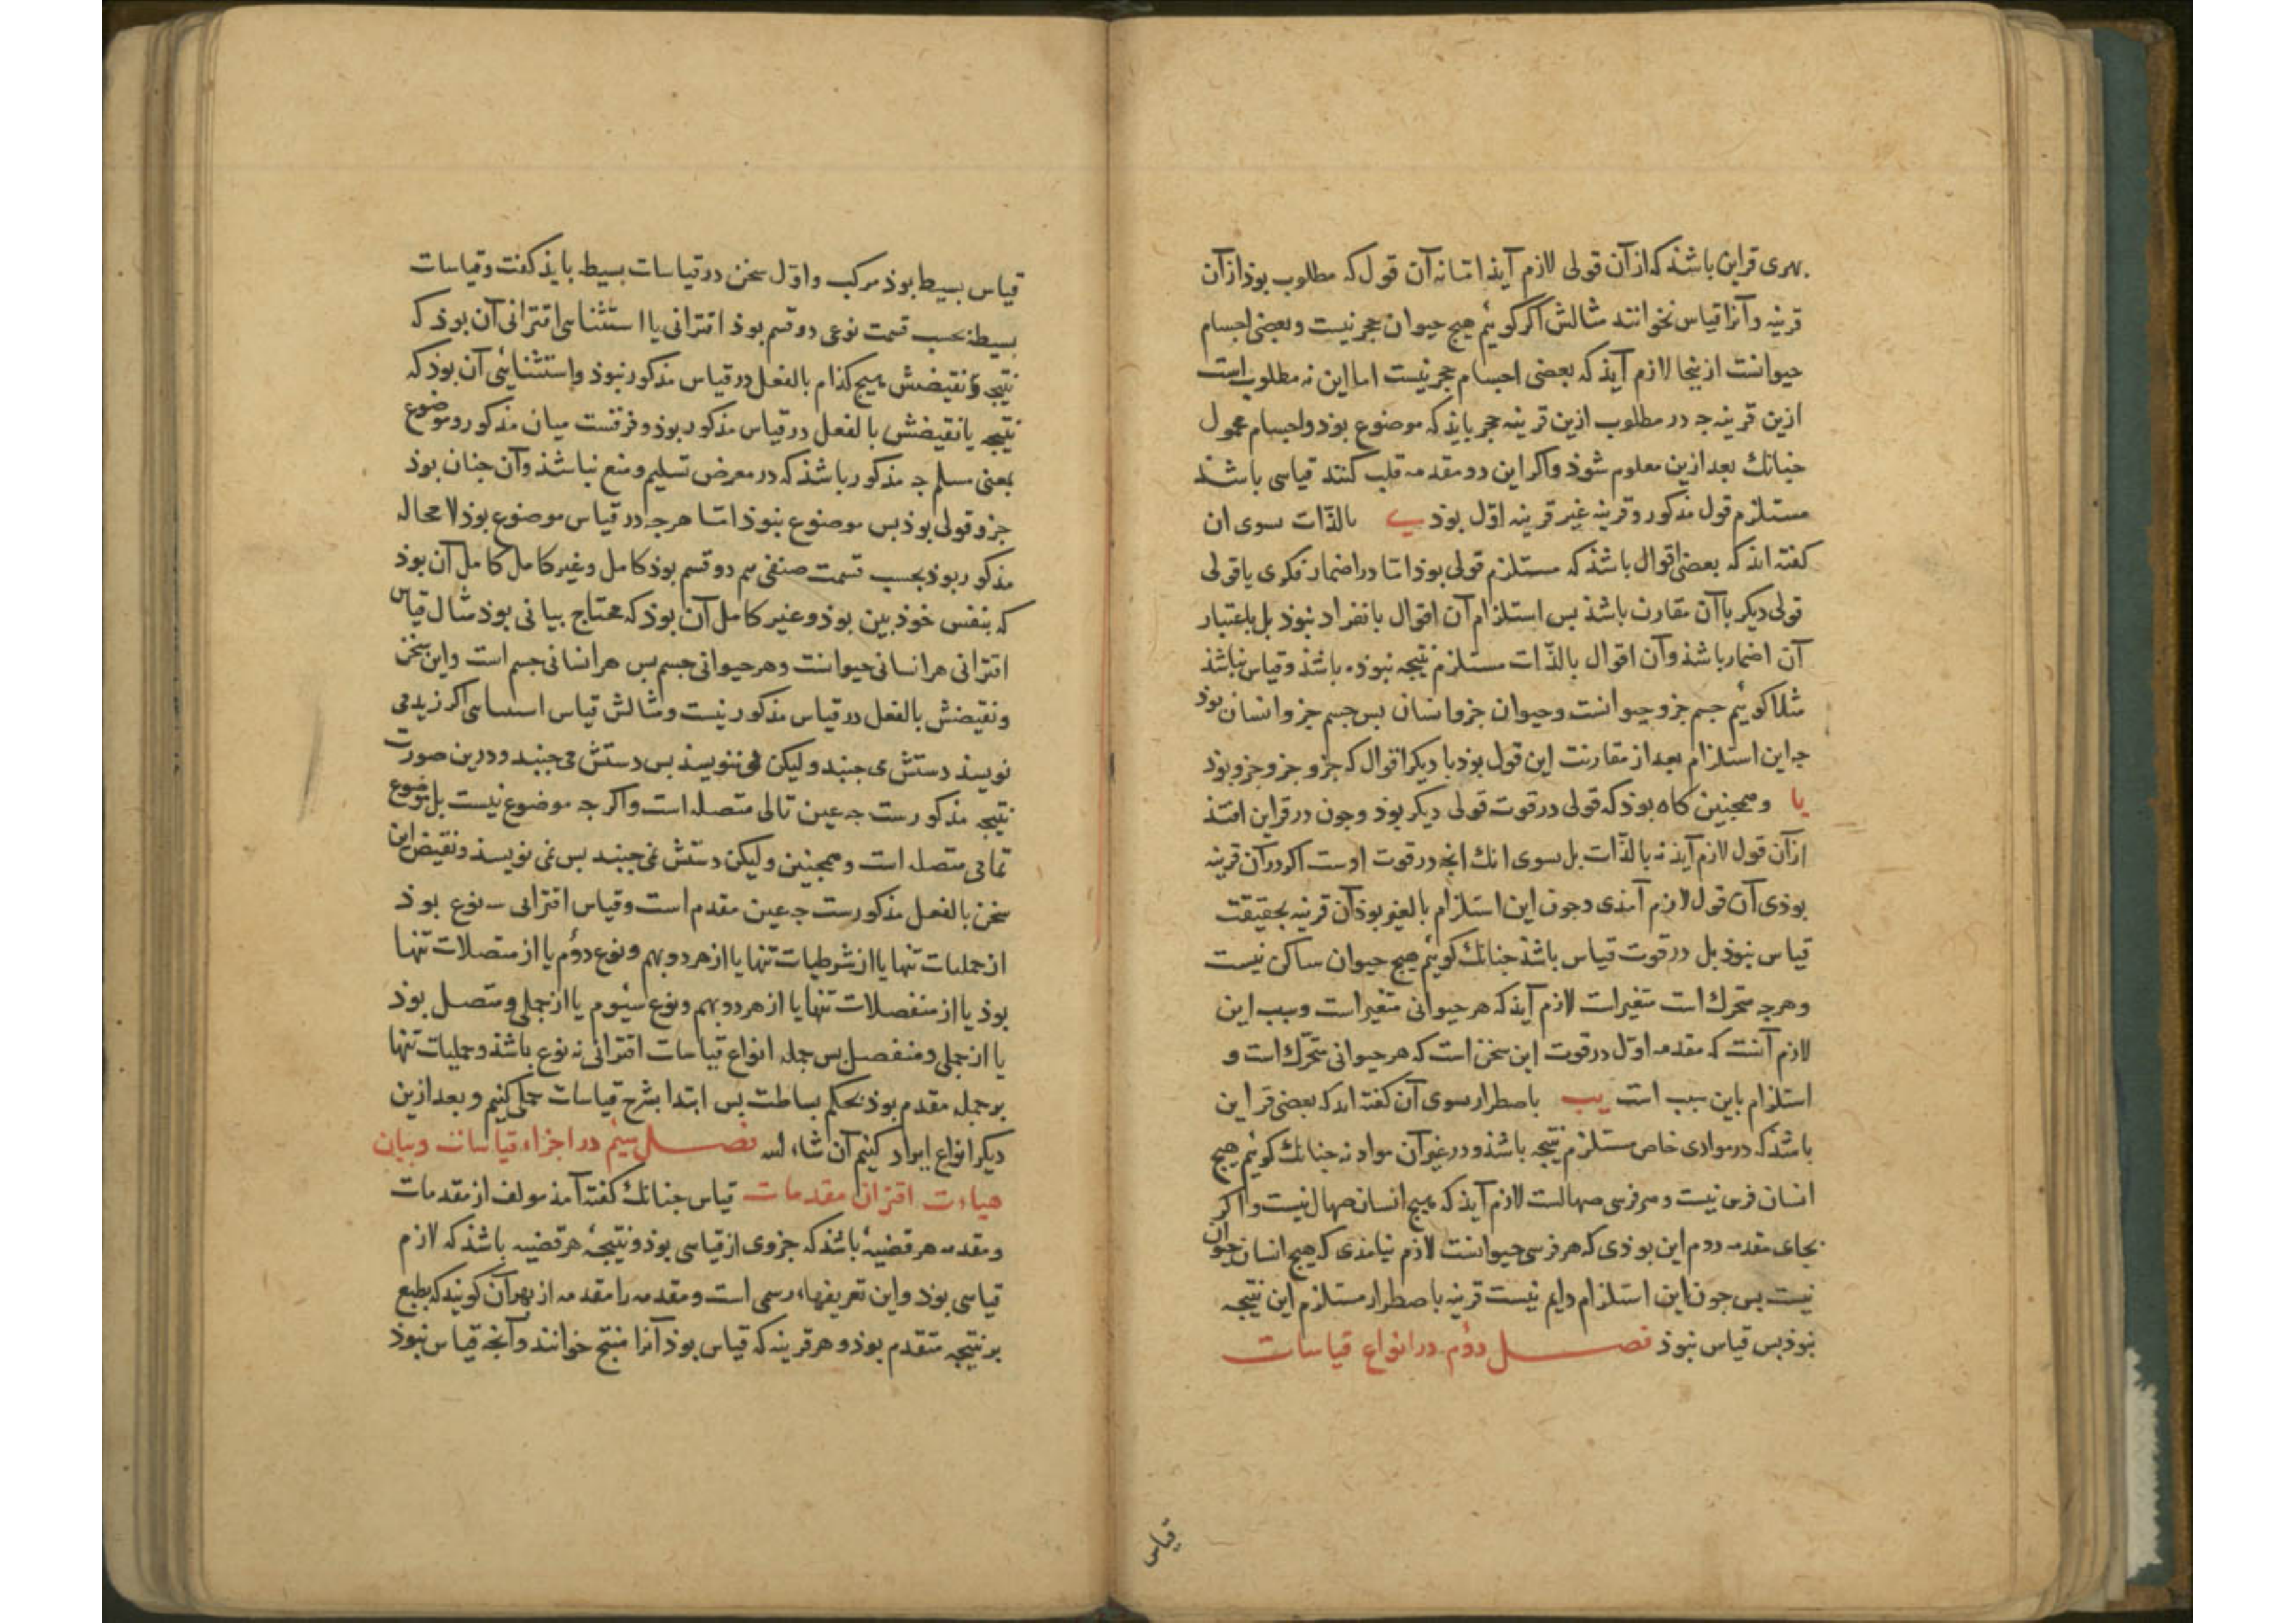 بهری قراین باشذ که از آن قولی لازم آیذ اما نه آن قول که مطلوب بوذ از آن
قرینه و آنرا قیاس نخوانند مثالش اکر کوئیم هیج حیوان حجر نیست و بعضی اجسام
حیوانست ازینجا لازم آیذ که بعضی اجسام حجر نیست اما این نه مطلوب است
ازین قرینه جه در مطلوب ازین قرینه حجر بایذ که موضوع بوذ و اجسام محمول
جنانك بعد ازین معلوم شوذ و اکر این دو مقدمه قلب کنند قیاسی باشد
مستلزم قول مذکور و قرینه غیر قرینه اول بوذ ی بالذات سوی ان
کفته اند که بعضی اقوال باشذ که مستلزم قولی بوذ اما در اضمار فکری یا قولی
قولی دیکر با آن مقارن باشذ بس استلزام آن اقوال بانفراد نبوذ بل باعتبار
آن اضمار باشذ و آن اقوال بالذات مستلزم نتیجه نبوذه باشذ و قیاس نباشذ
مثلا کوئیم جسم جزو حیوانست و حیوان جزو انسان بس جسم جزو انسان بوذ
جه این استلزام بعد از مقارنت این قول بوذ با دیکر اقوال که جزو جزو جزو بوذ
یا و همجنین کاه بوذ که قولی در قوت قولی دیکر بوذ و جون در قراین افتذ
از آن قول لازم آیذ نه بالذات بل بسوی انك انجه در قوت اوست اکر در آن قرینه
بوذی آن قول لازم آمذی و جون این استلزام بالعرض بوذ آن قرینه بحقیقت
قیاس نبوذ بل در قوت قیاس باشذ جنانك کوئیم هیج حیوان ساکن نیست
و هرجه متحرك است متغیر است لازم آیذ که هر حیوانی متغیر است و سبب این
لازم آنست که مقدمه اول در قوت این سخن است که هر حیوانی متحرك است و
استلزام باین سبب است یب باضطرار سوی آن کفته اند که بعضی قراین
باشذ که در موادی خاص مستلزم نتیجه باشذ و در غیر آن مواد نه جنانك کوئیم هیج
انسان فرس نیست و هر فرسی صهالست لازم آیذ که هیج انسان صهال نیست و اکر
بجای مقدمه دوم این بوذی که هر فرسی حیوانست لازم نیامذی که هیج انسان حیوان
نیست بس جون این استلزام دایم نیست قرینه باضطرار مستلزم این نتیجه
نبوذ بس قیاس نبوذ فصل دوم در انواع قیاسات
قیاس
قیاس بسیط بوذ مرکب و اول سخن در قیاسات بسیطه بایذ کفت و قیاسات
بسیطه بحسب قسمت نوعی دو قسم بوذ اقترانی یا استثنایی اقترانی آن بوذ که
نتیجه و نقیضش هیج کذام بالفعل در قیاس مذکور نبوذ و استثنائی آن بوذ که
نتیجه یا نقیضش بالفعل در قیاس مذکور بوذ و فرقست میان مذکور و موضوع
بمعنی مسلم جه مذکور باشذ که در معرض تسلیم و منع نباشذ و آن جنان بوذ
جزو قولی بوذ بس موضوع نبوذ اما هرجه در قیاس موضوع بوذ لا محاله
مذکور بوذ بحسب قسمت صنفی هم دو قسم بوذ کامل و غیر کامل کامل آن بوذ
که بنفس خوذ بین بوذ و غیر کامل آن بوذ که محتاج بیانی بوذ مثال قیاس
اقترانی هر انسانی حیوانست و هر حیوانی جسم بس هر انسانی جسم است و این سخن
و نقیضش بالفعل در قیاس مذکور نیست و مثالش قیاس استثنایی اکر زید می
نویسذ دستش می جنبد ولیکن می نویسذ بس دستش می جنبد و درین صورت
نتیجه مذکورست جه عین تالی متصله است و اکر جه موضوع نیست بل موضوع
تمامی متصله است و همجنین ولیکن دستش نمی جنبد بس نمی نویسذ و نقیض این
سخن بالفعل مذکورست جه عین مقدم است و قیاس اقترانی سه نوع بوذ
از حملیات تنها یا از شرطیات تنها یا از هر دو بهم و نوع دوم یا از متصلات تنها
بوذ یا از منفصلات تنها یا از هر دو بهم و نوع سیوم یا از حملی و متصل بوذ
یا از حملی و منفصل بس جمله انواع قیاسات اقترانی نه نوع باشذ و حملیات تنها
بر جمله مقدم بوذ بحکم بساطت بس ابتدا بشرح قیاسات حملی کنیم و بعد ازین
دیکر انواع ایراد کنیم آن شاء الله فصل سیم در اجزاء قیاسات و بیان
هیاءت اقتران مقدمات قیاس جنانك کفته آمذ مولف از مقدمات
و مقدمه هر قضیهٔ باشذ که جزوی از قیاسی بوذ و نتیجهٔ هر قضیه باشذ که لازم
قیاسی بوذ و این تعریفهاء رسمی است و مقدمه را مقدمه از بهر آن کویند که بطبع
بر نتیجه متقدم بوذ و هر قرینه که قیاس بوذ آنرا منتج خوانند و آنجه قیاس نبوذ